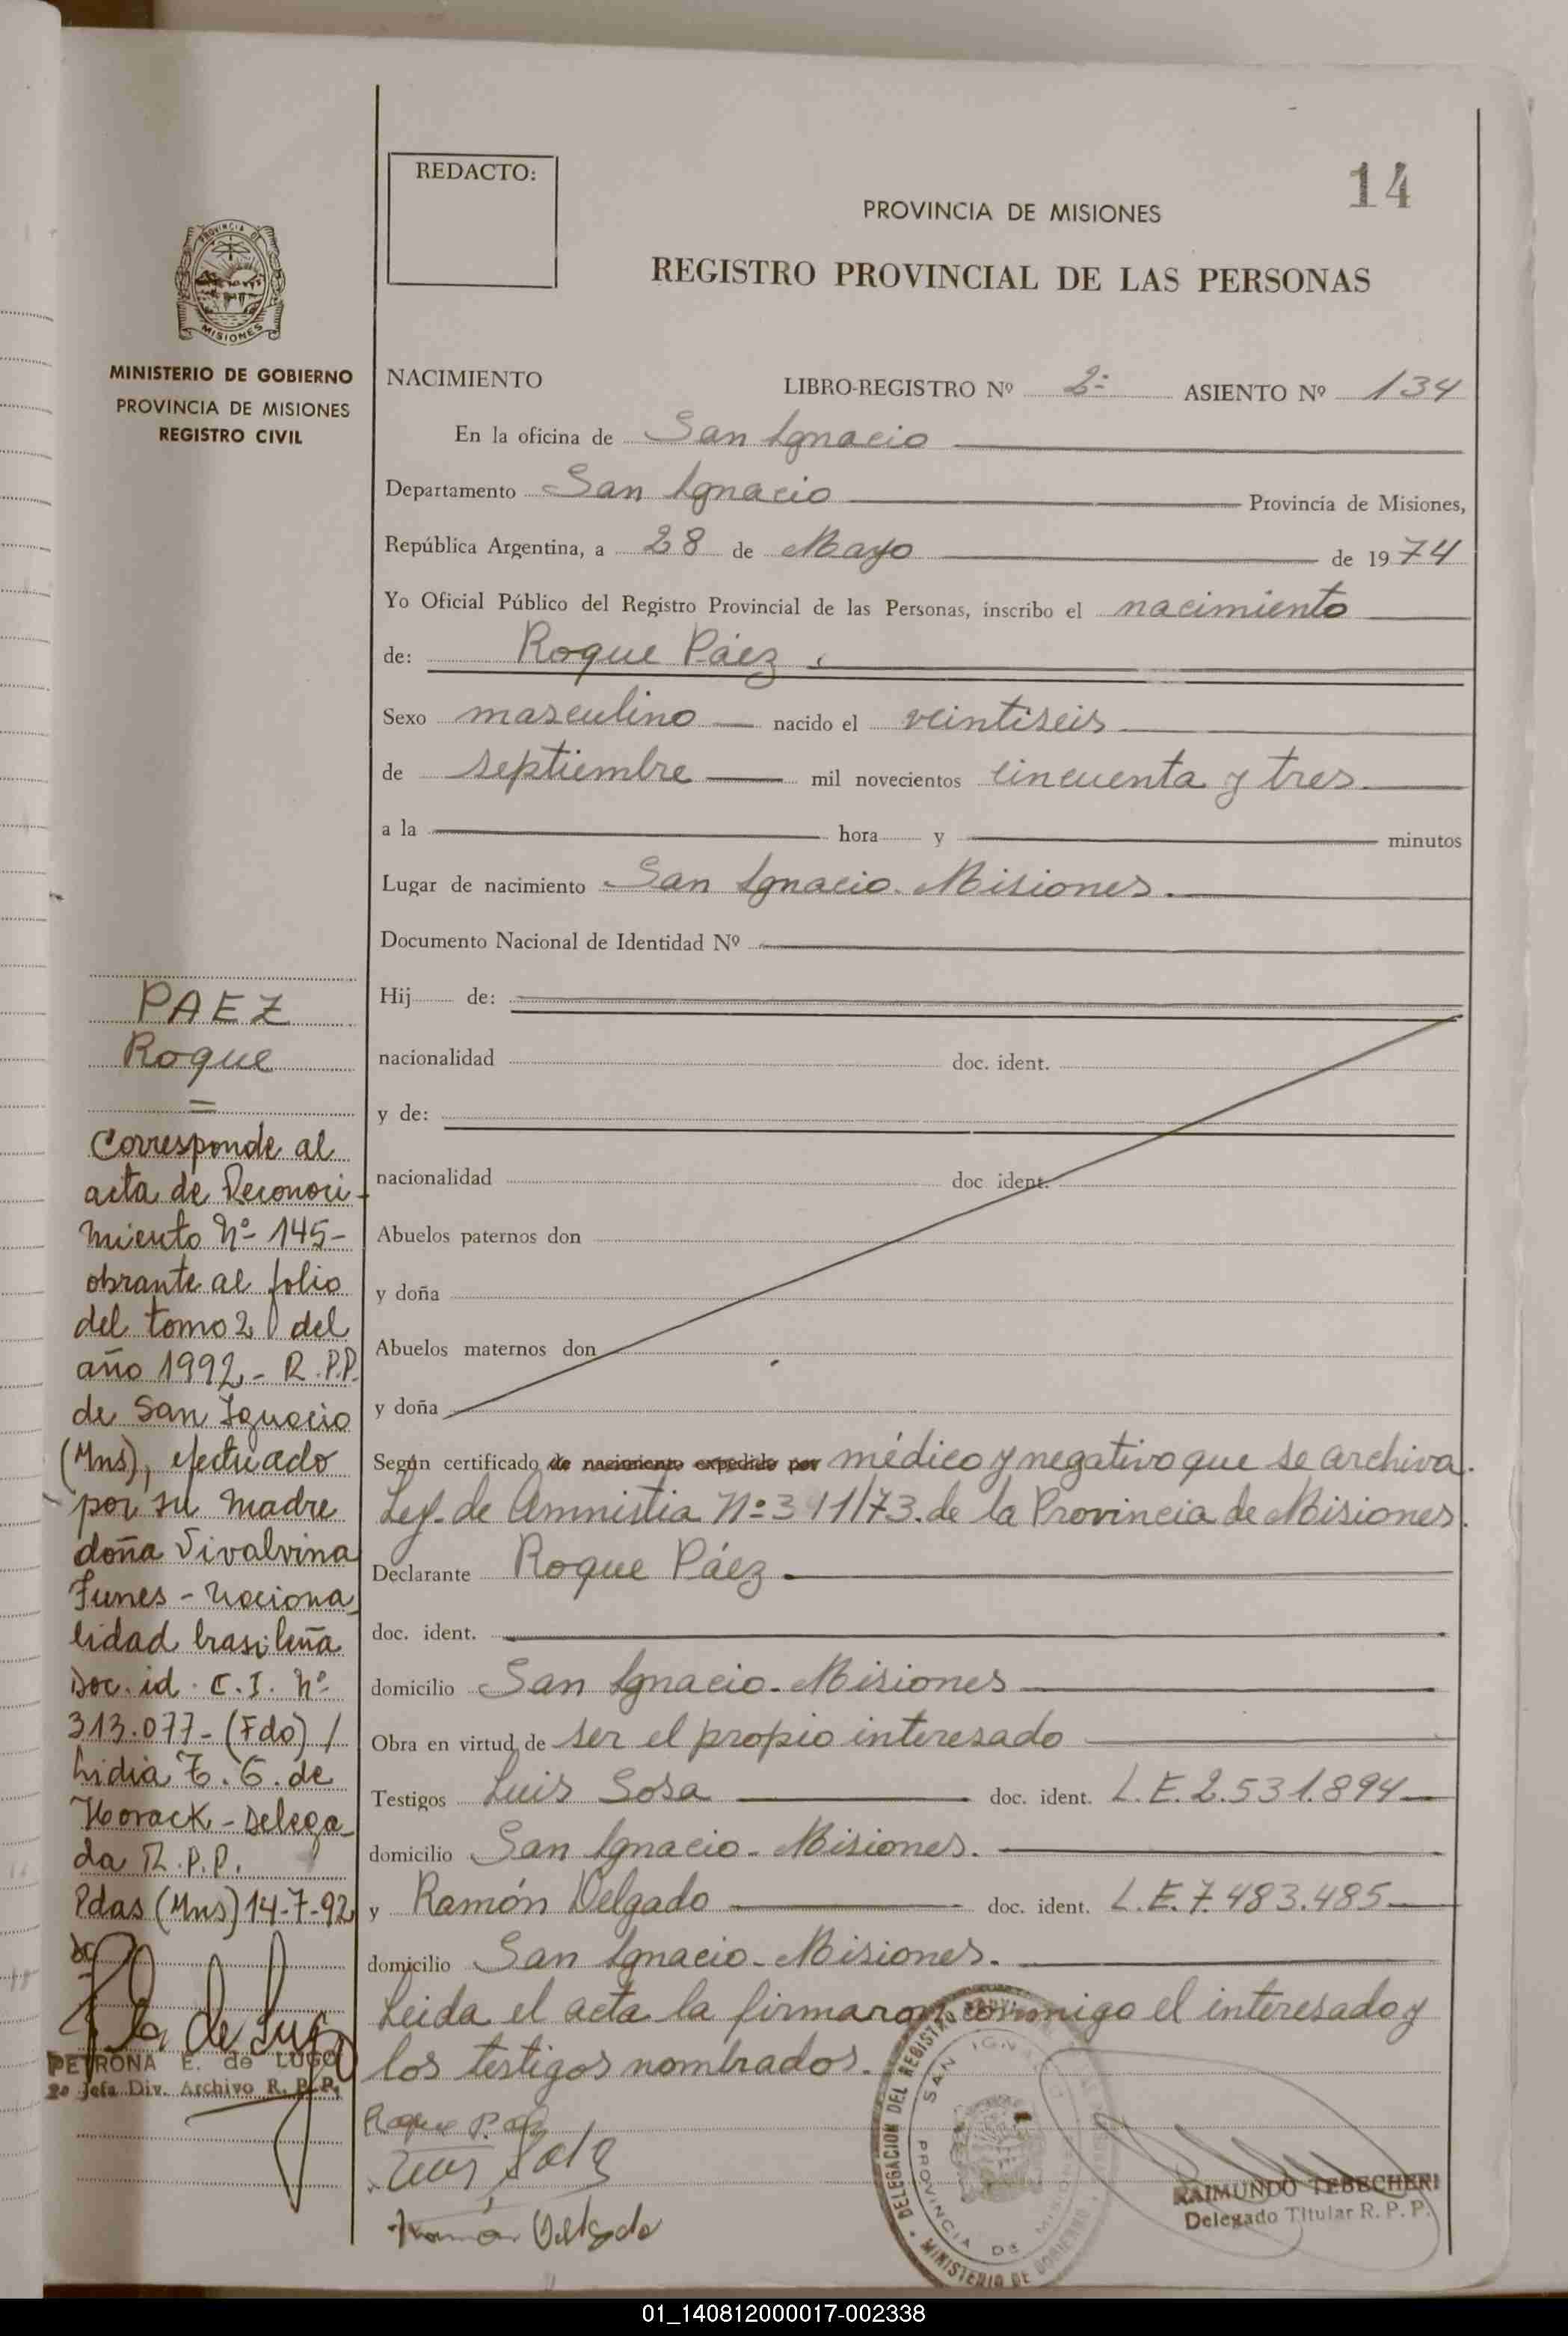 REDACTO:
14
PROVINCIA DE MISIONES
REGISTRO PROVINCIAL DE LAS PERSONAS
PROVINCIA DE
MISIONES
MINISTERIO DE GOBIERNO
PROVINCIA DE MISIONES
REGISTRO CIVIL
NACIMIENTO LIBRO-REGISTRO Nº 2º ASIENTO Nº 134
En la oficina de San Ignacio
Departamento San Ignacio Provincia de Misiones,
República Argentina, a 28 de Mayo de 1974
Yo Oficial Público del Registro Provincial de las Personas, inscribo el nacimiento
de: Roque Páez.
Sexo masculino nacido el veintiseis
de septiembre mil novecientos cincuenta y tres.
a la hora y minutos
Lugar de nacimiento San Ignacio. Misiones.
Documento Nacional de Identidad Nº
Hij de:
nacionalidad doc. ident.
y de:
nacionalidad doc ident.
Abuelos paternos don
y doña
Abuelos maternos don
y doña
Según certificado de nacimiento expedido por médico y negativo que se archiva.
Ley. de Amnistia Nº 311/73. de la Provincia de Misiones.
Declarante Roque Páez.
doc. ident.
domicilio San Ignacio - Misiones
Obra en virtud de ser el propio interesado
Testigos Luis Sosa doc. ident. L.E. 2.531.894
domicilio San Ignacio - Misiones.
y Ramón Delgado doc. ident. L.E. 7.483.485
domicilio San Ignacio - Misiones.
Leida el acta la firmaron conmigo el interesado y
los testigos nombrados.
Roque Paez
Luis Sosa
Ramón Delgado
DELEGACION DEL REGISTRO
SAN IGNACIO
PROVINCIA DE MISIONES
MINISTERIO DE GOBIERNO
RAIMUNDO TEBECHERI
Delegado Titular R. P. P.
PAEZ
Roque
=
Corresponde al
acta de Reconoci-
miento Nº 145-
obrante al folio
del tomo 2 del
año 1992 - R.P.P.
de San Ignacio
(Mns), efectuado
por su madre
doña Vivalvina
Funes - naciona
lidad brasileña
Doc. id. C.I. Nº
313.077 - (Fdo) /
Lidia Z. G. de
Horack - Delega-
da R.P.P.
Pdas (Mns) 14-7-92
PETRONA E. de LUGO
2º Jefa Div. Archivo R. P. P.
01_140812000017-002338